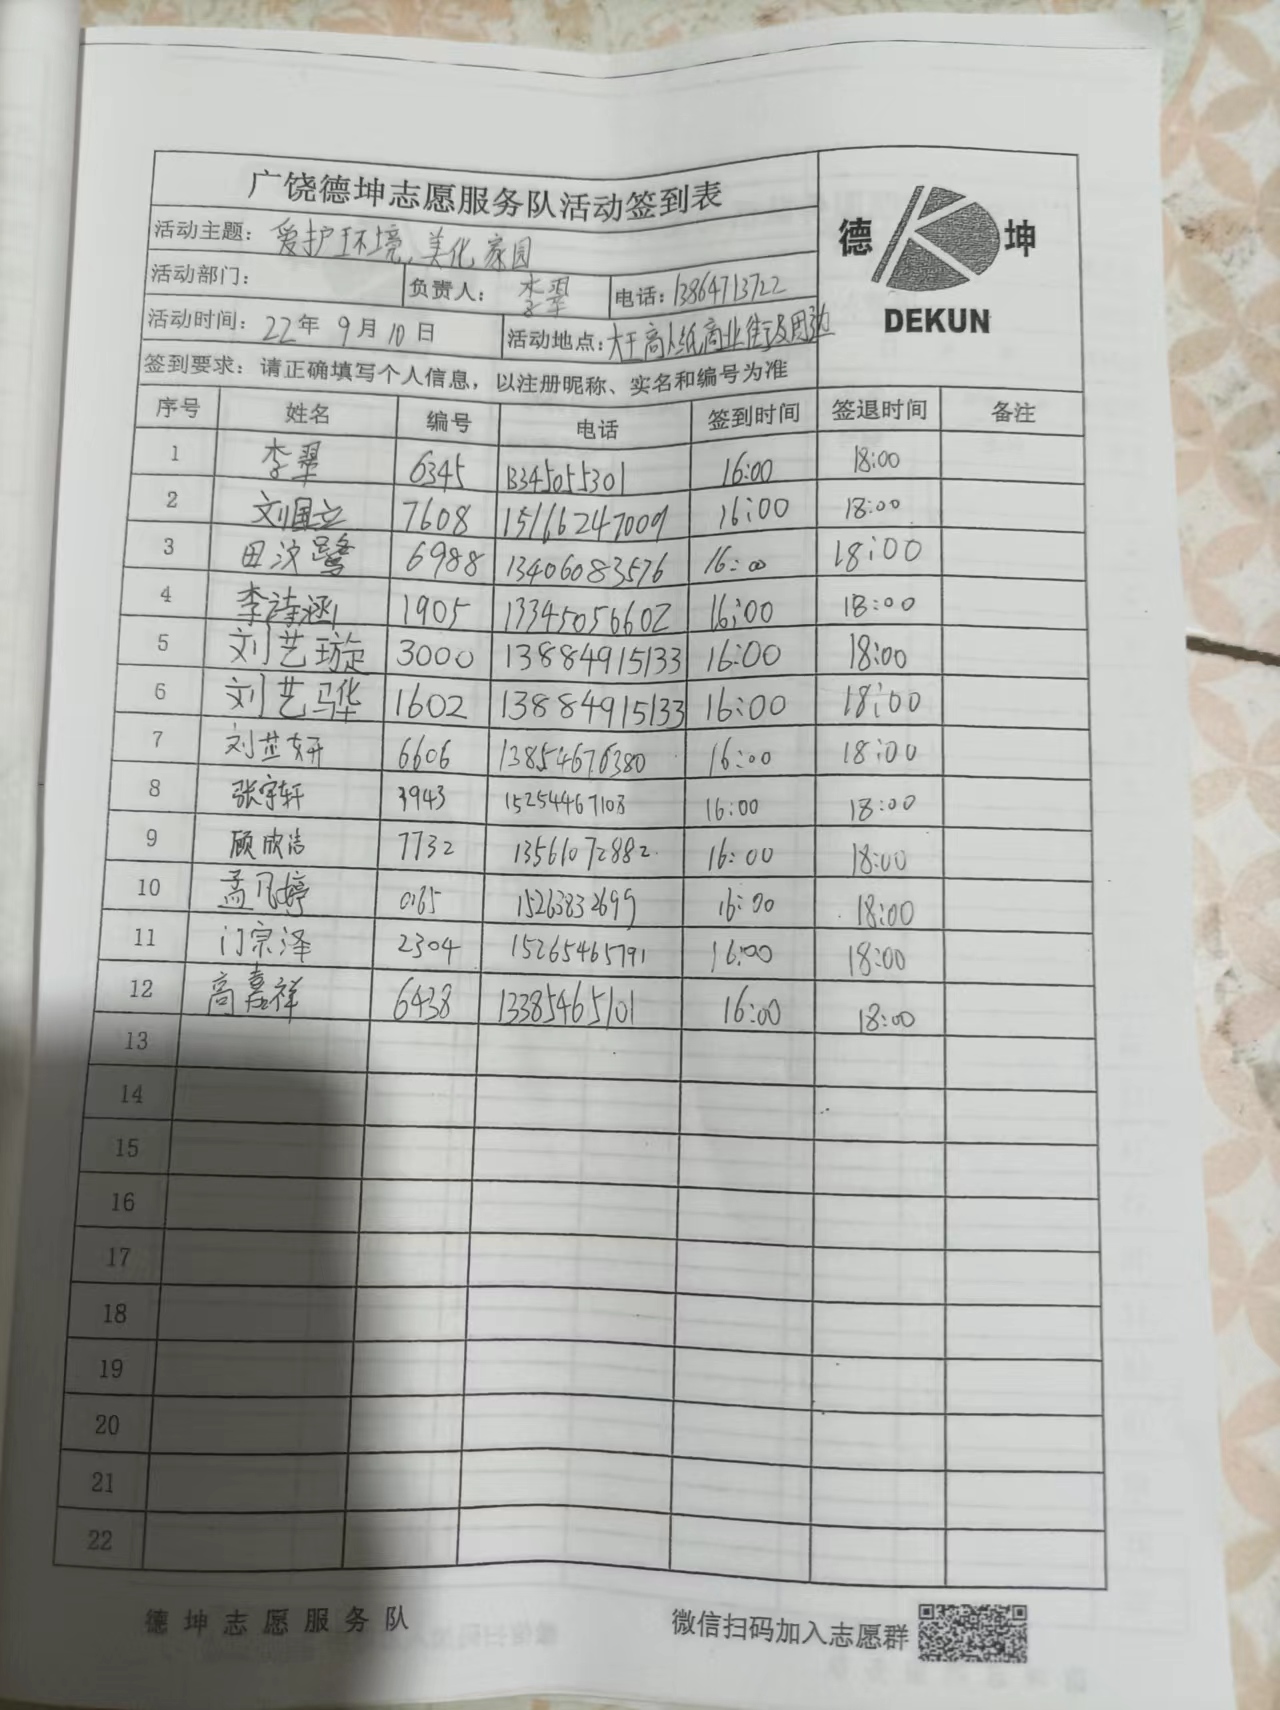 广饶德坤志愿服务队活动签到表
德 坤
DEKUN
活动主题：爱护环境，美化家园
活动部门： 负责人：李翠 电话：13864713722
活动时间：22年 9月10日 活动地点：大王商人纸商业街及周边
签到要求：请正确填写个人信息，以注册昵称、实名和编号为准
序号 姓名 编号 电话 签到时间 签退时间 备注
1 李翠 6345 13345055301 16:00 18:00
2 刘国立 7608 15166247009 16:00 18:00
3 田汶鹭 6988 13406083576 16:00 18:00
4 李诗涵 1905 13345056602 16:00 18:00
5 刘艺璇 3000 13884915133 16:00 18:00
6 刘艺骅 1602 13884915133 16:00 18:00
7 刘芷妍 6606 13854676380 16:00 18:00
8 张宇轩 3943 15254467103 16:00 18:00
9 顾欣浩 7732 13561072882 16:00 18:00
10 孟凡婷 0165 15263832699 16:00 18:00
11 门宗泽 2304 15265465791 16:00 18:00
12 高嘉祥 6438 13385465101 16:00 18:00
13
14
15
16
17
18
19
20
21
22
德坤志愿服务队 微信扫码加入志愿群